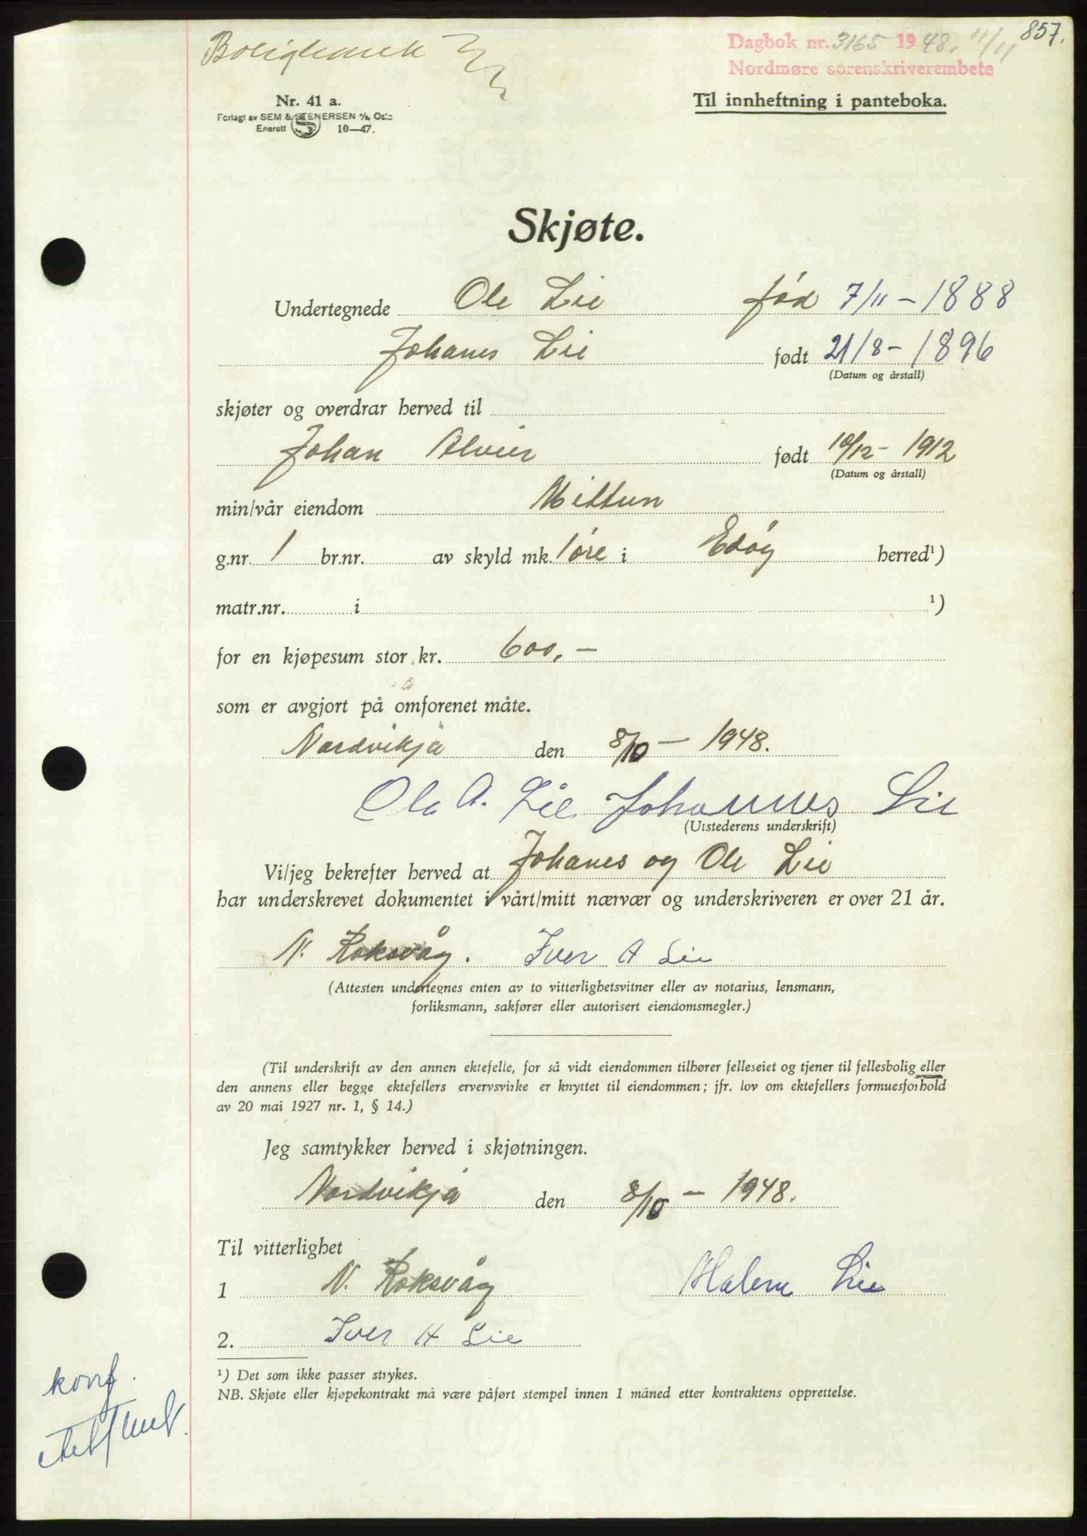 857.
Dagbok nr. 3165 1948. 11/11
Nordmøre sorenskriverembete
Til innheftning i panteboka.
Nr. 41 a.
Forlagt av SEM & STENERSEN A/S, Oslo
Enerett 10—47.
Skjøte.
Undertegnede Ole Lie født 7/11 - 1888
Johanes Lie født 21/8 - 1896
(Datum og årstall)
skjøter og overdrar herved til
Johan født 10/12 - 1912
(Datum og årstall)
min/vår eiendom
g.nr. 1 br.nr. av skyld mk. 1 øre i Edøy herred¹)
matr.nr. i ¹)
for en kjøpesum stor kr. 600,-
som er avgjort på omforenet måte.
Nordvikja den 8/10 - 1948.
Ole A. Lie Johannes Lie
(Utstederens underskrift)
Vi/jeg bekrefter herved at Johanes og Ole Lie
har underskrevet dokumentet i vårt/mitt nærvær og underskriveren er over 21 år.
N. Roksvåg. Iver A Lie
(Attesten undertegnes enten av to vitterlighetsvitner eller av notarius, lensmann,
forliksmann, sakfører eller autorisert eiendomsmegler.)
(Til underskrift av den annen ektefelle, for så vidt eiendommen tilhører felleseiet og tjener til fellesbolig eller
den annens eller begge ektefellers ervervsvirke er knyttet til eiendommen; jfr. lov om ektefellers formuesforhold
av 20 mai 1927 nr. 1, § 14.)
Jeg samtykker herved i skjøtningen.
Nordvikja den 8/10 - 1948.
Til vitterlighet
1 N. Roksvåg Lie
2. Iver A Lie
¹) Det som ikke passer strykes.
NB. Skjøte eller kjøpekontrakt må være påført stempel innen 1 måned etter kontraktens opprettelse.
konf.